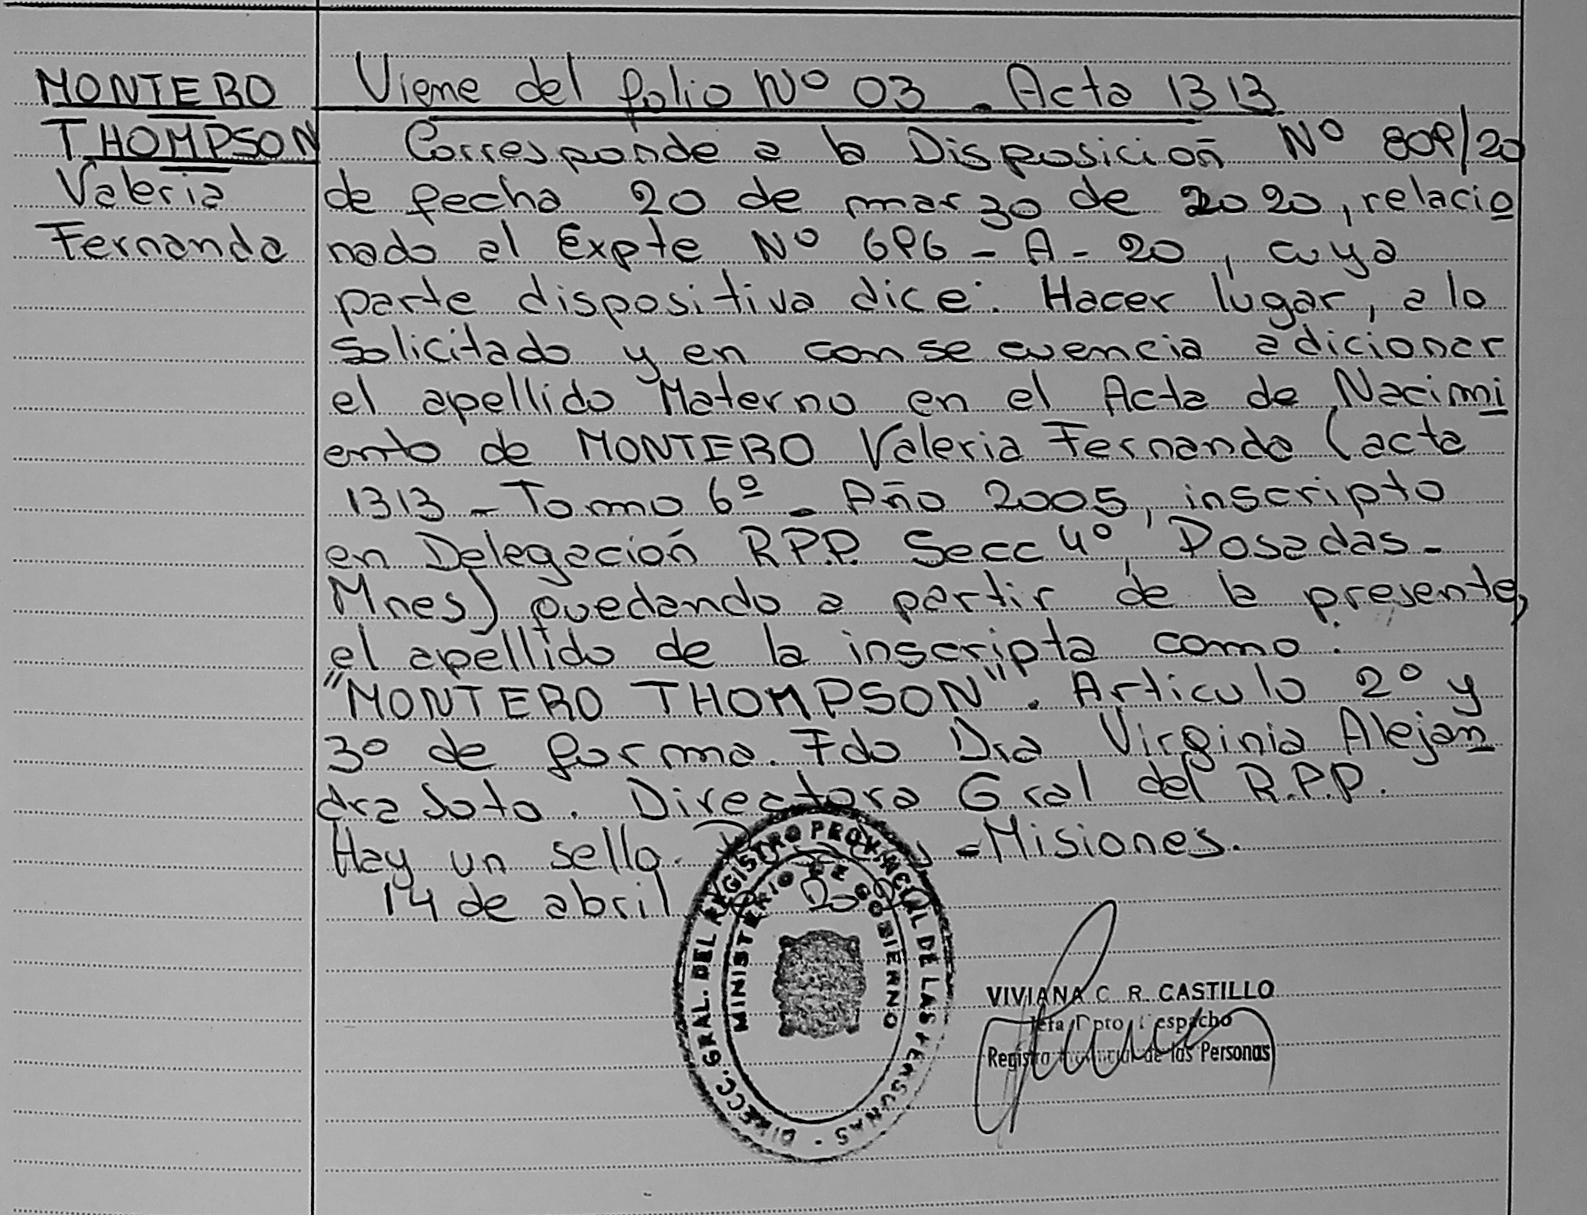 MONTERO
THOMPSON
Valeria
Fernanda
Viene del folio Nº 03 - Acta 1313
Corresponde a la Disposición Nº 809/20
de fecha 20 de marzo de 2020, relacio
nado al Expte Nº 696 - A - 20, cuya
parte dispositiva dice: Hacer lugar, a lo
solicitado y en consecuencia adicionar
el apellido Materno en el Acta de Nacimi
ento de MONTERO Valeria Fernanda (acta
1313 - Tomo 6º - Año 2005, inscripto
en Delegación R.P.P. Secc 4º, Posadas -
Mnes) quedando a partir de la presente,
el apellido de la inscripta como:
"MONTERO THOMPSON". Articulo 2º y
3º de forma. Fdo Dra Virginia Alejan
dra Soto. Directora Gral del R.P.P.
Hay un sello. - Misiones.
14 de abril
DIRECC. GRAL. DEL REGISTRO PROVINCIAL DE LAS PERSONAS -
MINISTERIO DE GOBIERNO
VIVIANA C. R. CASTILLO
Jefa Dpto. Despacho
Registro Provincial de las Personas